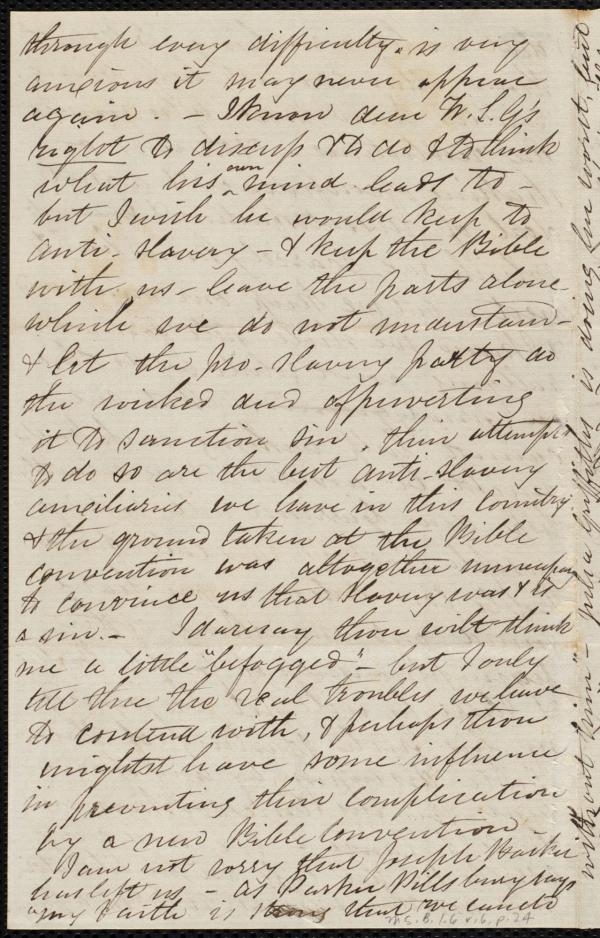 through every difficulty. is very
anxious it may never appear
again. - I know dear W. L. G's
right to discuss & to do & to think
what his own mind leads to -
but I wish he would keep to
anti-slavery - & keep the Bible
with us - leave the parts alone
which we do not understand -
& let the pro-slavery party do
the wicked deed of perverting
it to sanction sin, their attempts
to do so are the best anti-slavery
auxiliaries we have in this country.
& the ground taken at the Bible
convention was altogether unnecessary
to convince us that slavery was & is
a sin. - I daresay thou wilt think
me a little "befogged" - but I only
tell thee the real troubles we have
to contend with, & perhaps thou
mightst have some influence
in preventing their complication
by a new Bible Convention -
I am not sorry that Joseph Barker
has left us - as Parker Pillsbury says
"my faith is strong that we can do
without him" - Julia Griffiths is doing her worst, but
M.S. B.1.6 v.6, p.24